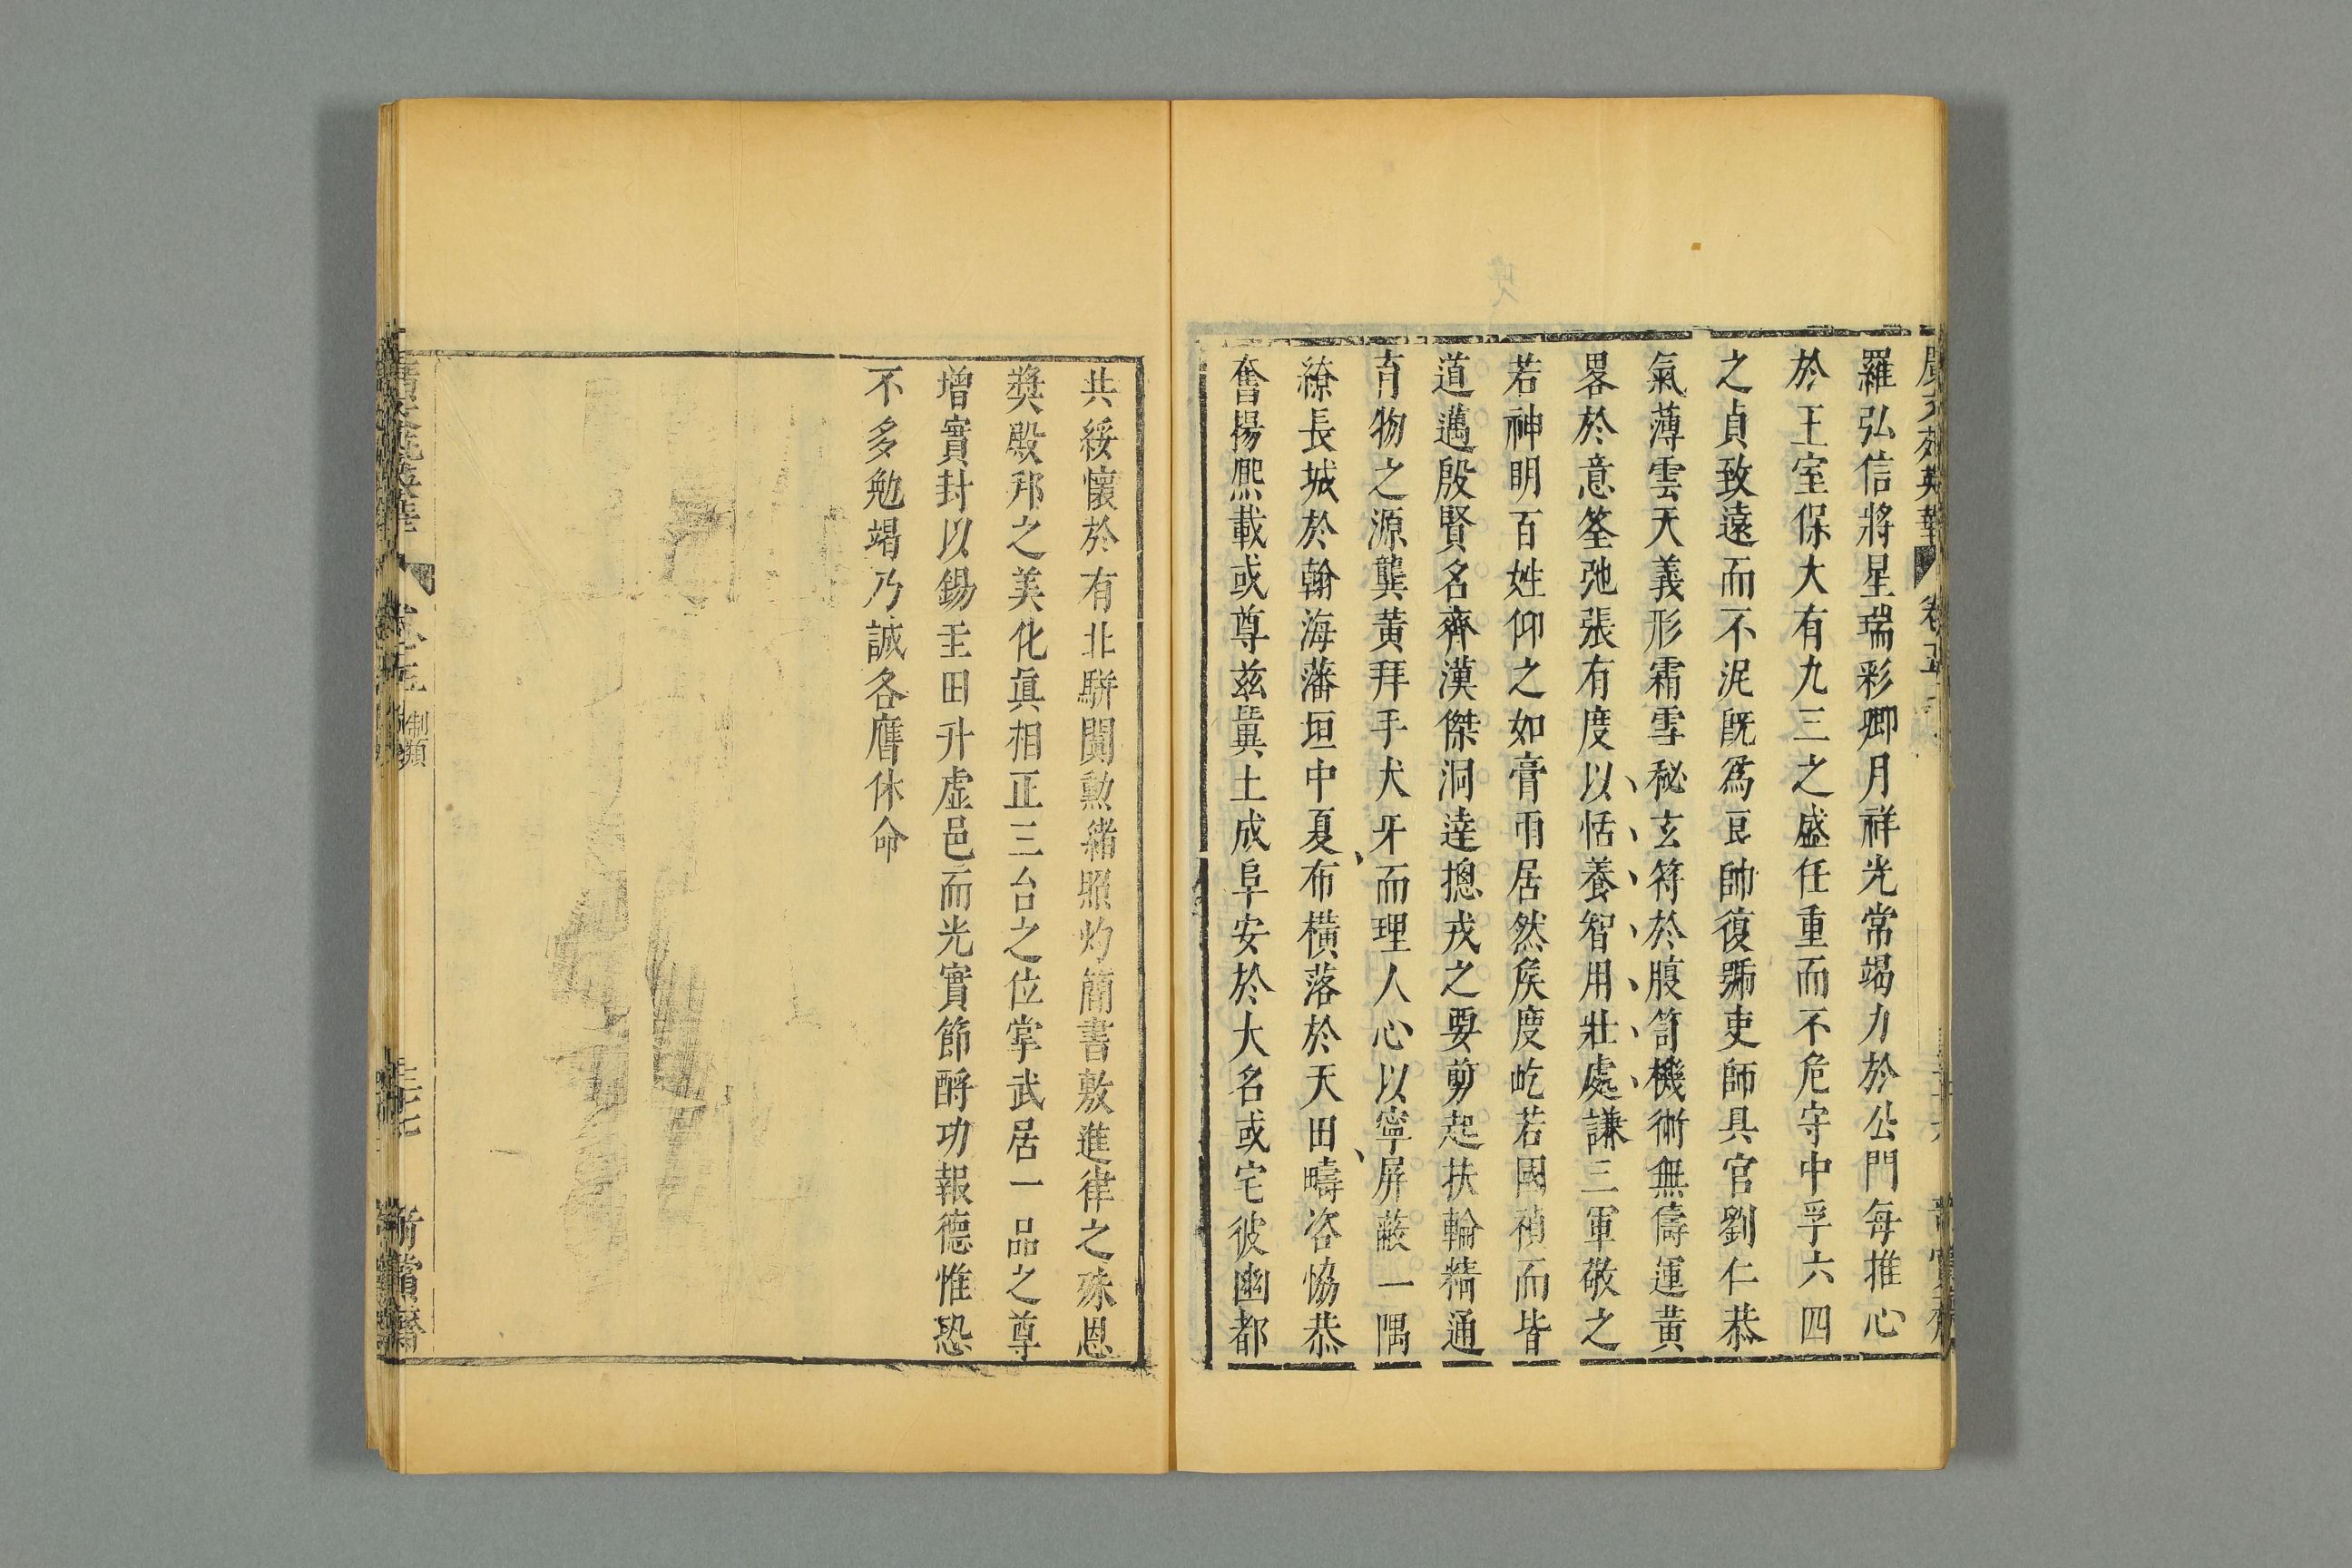 羅弘信將星瑞彩卿月祥光常竭力於公門每推心
於王室保大有九三之盛任重而不危守中孚六四
之貞致遠而不泥既爲良帥復號吏師具官劉仁恭
氣薄雲天義形霜雪秘玄符於腹笥機術無儔運黄
畧於意筌弛張有度以恬養智用壯處謙三軍敬之
若神明百姓仰之如膏雨居然矦度屹若國禎而皆
道邁殷賢名齊漢傑洞逹摠戎之要剪起扶輪精通
育物之源龔黄拜手犬牙而理人心以寧屏蔽一隅
繚長城於翰海藩垣中夏布横落於天田疇咨恊恭
奮揚熈載或尊兹冀土成阜安於大名或宅彼幽都
共綏懷於有北駢闐勲緒照灼簡書敷進律之殊恩
奬殿邦之美化眞相正三台之位掌武居一品之尊
增實封以錫圭田升虚邑而光實節酹功報德惟恐
不多勉竭乃誠各膺休命
制類